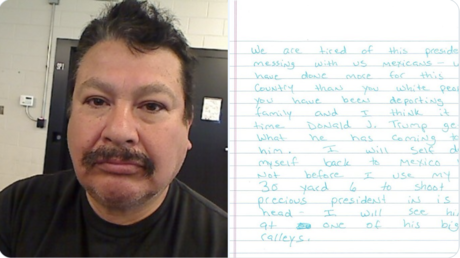 We are tired of this preside
messing with us mexicans -
have done more for this
Country than you white pea
you have been deporting
family and I think it
time Donald J. Trump ge
What he has coming to
him. I will self de
myself back to Mexico
Not before I use my
30 yard 6 to shoot
precious president in is
head - I will see hi
at one of his big
ralleys.